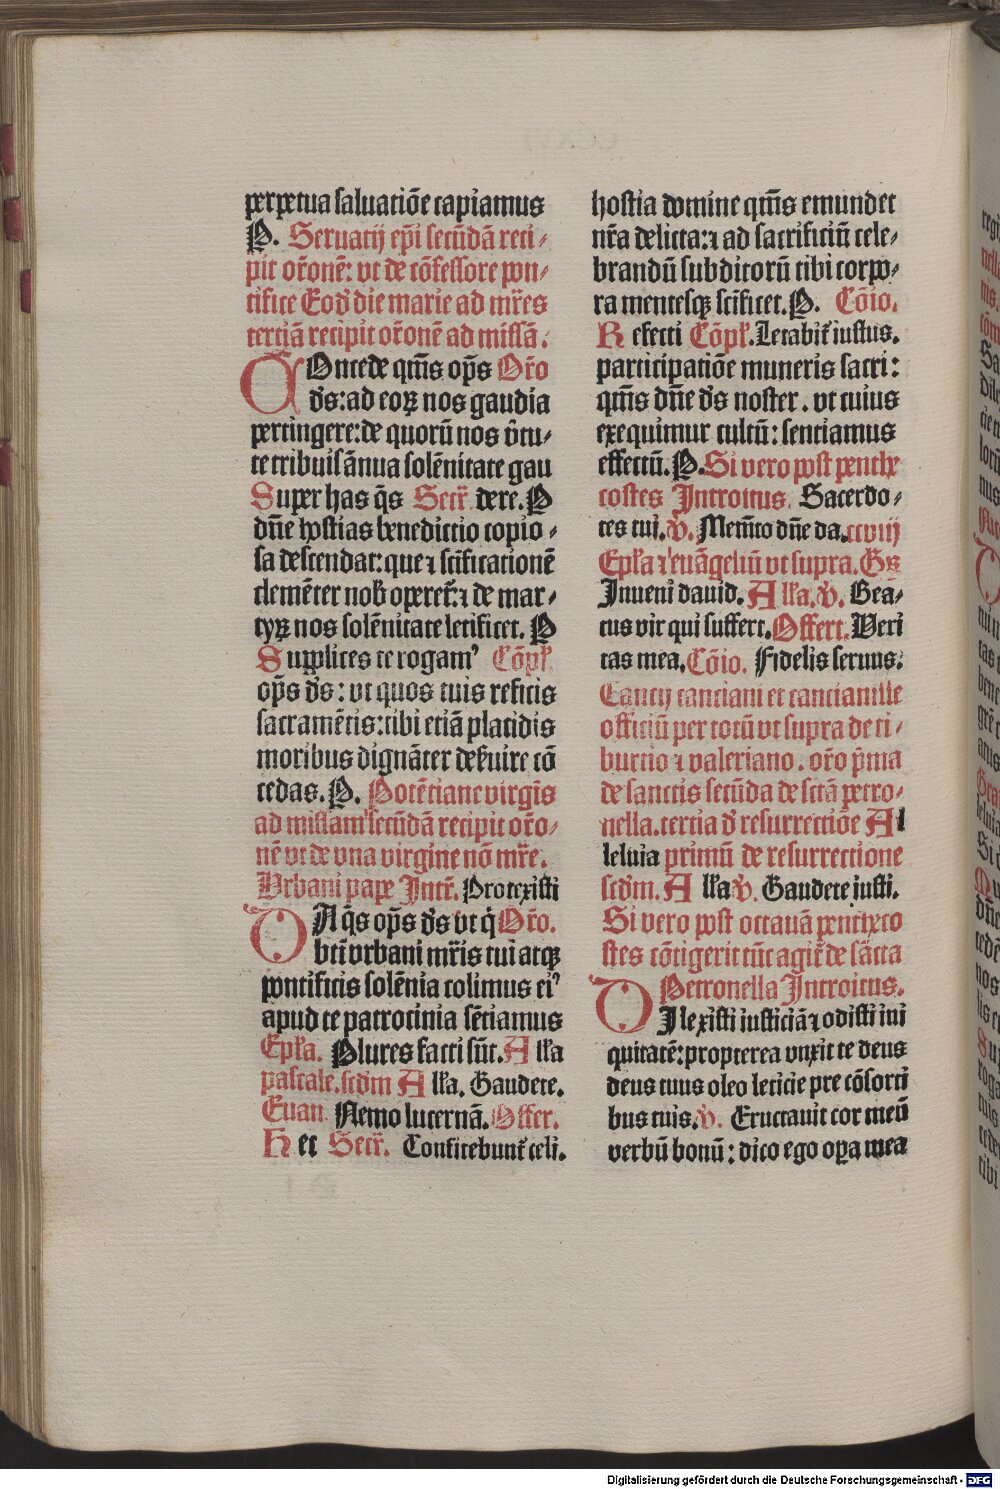 perpetua saluatiōe capiamus
P. Seruacij ep̄i secūdā reci-
pit or̄onē: vt de cōfessore pon-
tifice Eod̄ die marie ad mr̄es
terciā recipit or̄onē ad missā.
COncede qm̄s op̄s Or̄o
d̄s: ad eoꝝ nos gaudia
pertingere: de quorū nos v̄tu-
te tribuis ānua solēnitate gau
Super has q̄s Secr̄. dere. P
dn̄e hostias benedictio copio-
sa descendat: que ⁊ scificationē
clemēter nob̄ operet̄: ⁊ de mar-
tyꝝ nos solēnitate letificet. P
Supplices te rogamꝰ Cōpl̄.
op̄s d̄s: vt quos tuis reficis
sacramētis: tibi etiā placidis
moribus dignāter deẜuire cō
cedas. P. Potēciane virgīs
ad missam secūdā recipit or̄o-
nē vt de vna virgine nō mr̄e.
Vrbani pape Intr̄. Protexisti
DA q̄s op̄s d̄s vt q̇ Or̄o.
bt̄i vrbani mr̄is tui atqꝫ
pontificis solēnia colimus eiꝰ
apud te patrocinia sētiamus
Epl̄a. Plures facti sūt. A ll̄a
pascale. scd̄m A ll̄a. Gaudete.
Euan. Nemo lucernā. Offer.
H et Secr̄. Confitebunt̄ celi.
hostia domine qm̄s emundet
nr̄a delicta: ⁊ ad sacrificiū cele-
brandū subditorū tibi corpo-
ra mentesqꝫ scificet. P. Cōio.
R efecti Cōpl̄. Letabit̄ iustus.
participatiōe muneris sacri:
qm̄s dn̄e d̄s noster. vt cuius
exequimur cultū: senciamus
effectū. P. Si vero post penthe
costes Introitus. Sacerdo-
tes tui. V̄. Mem̄to dn̄e da. ccviij
Epl̄a ⁊ euāgeliū vt supra. Gꝝ
Inueni dauid. A ll̄a. V̄. Bea-
tus vir qui suffert. Offert. Veri
tas mea. Cōio. Fidelis seruus.
Cancij canciani et cancianille
officiū per totū vt supra de ti-
burcio ⁊ valeriano. or̄o p̄ma
de sanctis secūda de sctā petro-
nella. tercia d̄ resurrectiōe Al
leluia primū de resurrectione
scd̄m. A ll̄a V̄. Gaudete iusti.
Si vero post octauā pentheco
stes cōtigerit tūc agit̄ de sācta
Petronella Introitus.
DIlexisti iusticiā ⁊ odisti ini
quitatē: propterea vnxit te deus
deus tuus oleo leticie pre cōsorti
bus tuis. V̄. Eructauit cor meū
verbū bonū: dico ego opa mea
Digitalisierung gefördert durch die Deutsche Forschungsgemeinschaft - DFG